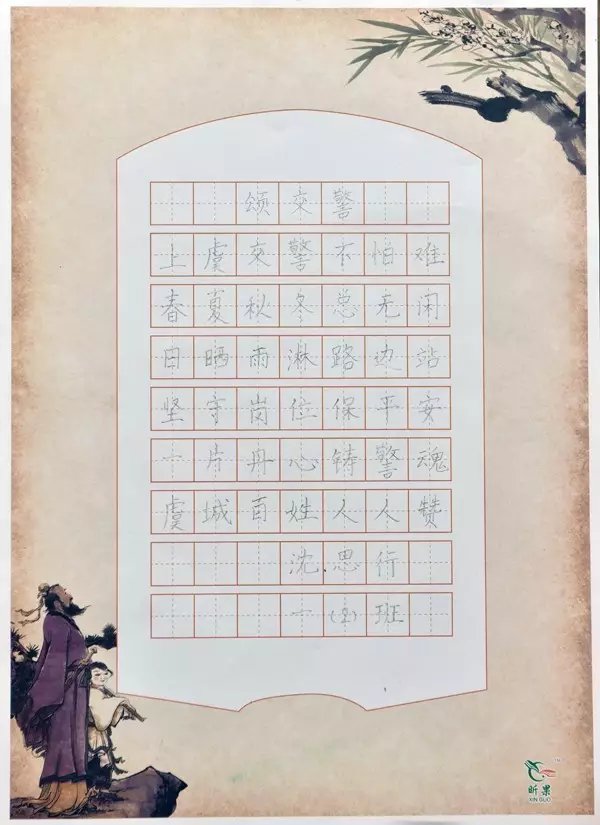 颂交警
上虞交警不怕难
春夏秋冬总无闲
日晒雨淋路边站
坚守岗位保平安
一片丹心铸警魂
虞城百姓人人赞
沈思衍
一(2)班
昕果
XIN GUO